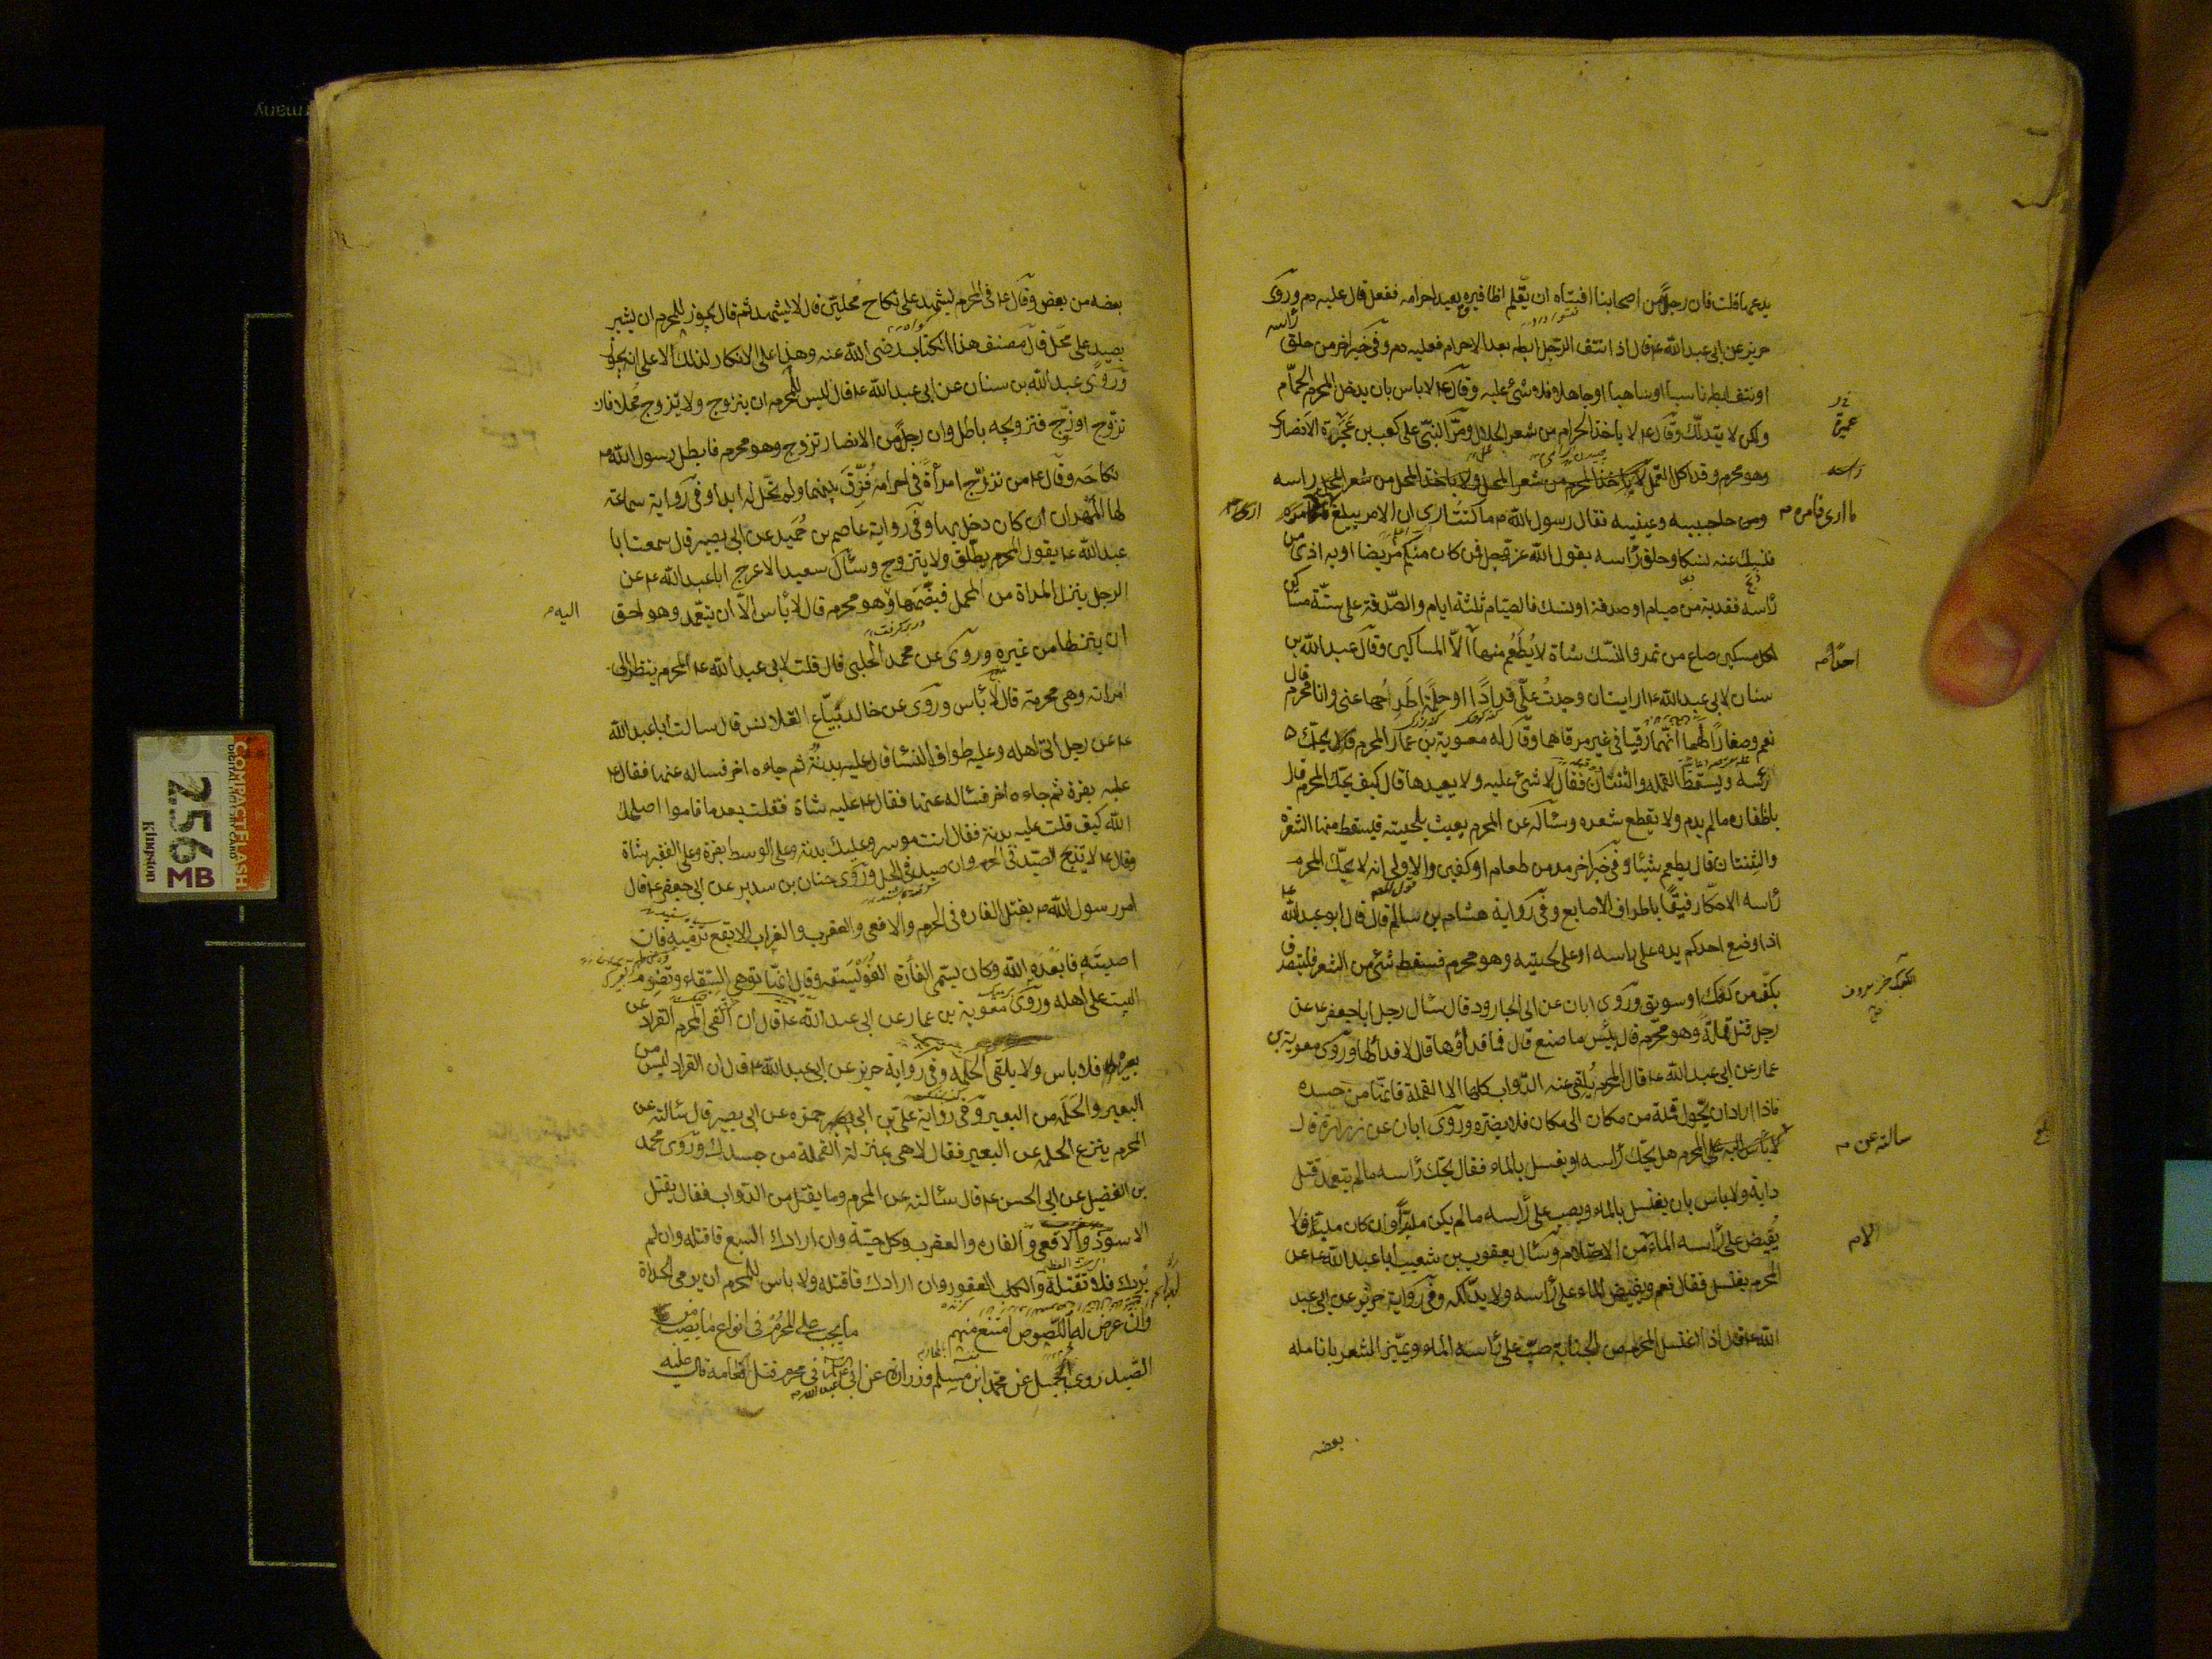 يدعها قلت فان رجلا من اصحابنا افتاه ان يقلم اظافيره ويعيد احرامه ففعل قال عليه دم وروى
حريز عن ابى عبد الله ع قال اذا نتف الرجل ابطه بعد الاحرام فعليه دم وفى خبر اخر من حلق رأسه
او نتف ابطه ناسيا او ساهيا او جاهلا فلا شئ عليه وقال ع لا باس بان يدخل المحرم الحمام
ولكن لا يتدلك وقال ع لا ياخذ الحرام من شعر الحلال ومر النبى على كعب بن عجرة الانصارى
وهو محرم وقد اكل القمل راسه
وحاجبيه وعينيه فقال رسول الله ص ما كنت ارى ان الامر يبلغ ما ارى فامره
فنسك عنه نسكا وحلق رأسه بقول الله عز وجل فمن كان منكم مريضا او به اذى من
رأسه ففدية من صيام او صدقة او نسك فالصيام ثلثة ايام والصدقة على ستة مساكين
لكل مسكين صاع من تمر والنسك شاة لا يطعم منها احدا الا المساكين وقال عبد الله بن
سنان لابى عبد الله ع ارايت ان وجدت على قرادا او حلمة اطرحها عنى وانا محرم قال
نعم وصغارا لهما انهما رقيا فى غير مرقاهما وقال له معوية بن عمار المحرم يحك
رأسه ويسقط القملة والثنتان فقال لا شئ عليه ولا يعيدها قال كيف يحك المحرم قال
باظفاره مالم يدم ولا يقطع شعره وسأله عن المحرم يعبث بلحيته فيسقط منها الشعرة
والثنتان قال يطعم شيئا وفى خبر اخر مد من طعام او كفين والاولى انه لا يحك المحرم
رأسه الا حكا رفيقا باطراف الاصابع وفى رواية هشام بن سالم قال قال ابو عبد الله ع
اذا وضع احدكم يده على راسه او على لحيته وهو محرم فسقط شئ من الشعر فليتصدق
بكف من كعك او سويق وروى ابان عن ابى الجارود قال سأل رجل ابا جعفر ع عن
رجل قتل قملة وهو محرم قال بئس ما صنع قال فما فداؤها قال لا فدا لها وروى معوية بن
عمار عن ابى عبد الله ع قال المحرم يلقى عنه الدواب كلها الا القملة فانها من جسده
فاذا اراد ان يحول قملة من مكان الى مكان فلا يضره وروى ابان عن زرارة قال
سالته عن المحرم هل يحك رأسه او يغسل بالماء فقال يحك رأسه مالم يتعمد قتل
دابة ولا باس بان يغتسل بالماء ويصب على رأسه مالم يكن ملبدا وان كان ملبدا فلا
يفيض على رأسه الماء الا من الاحتلام وسأل يعقوب بن شعيب ابا عبد الله ع عن
المحرم يغتسل فقال نعم ويفيض الماء على رأسه ولا يدلكه وفى رواية حريز عن ابى عبد
الله ع قال اذا اغتسل المحرم من الجنابة صب على رأسه الماء ويميز الشعر بانامله
بعضه
بعضه من بعض وقال ع فى المحرم يشهد على نكاح محلين قال لا يشهد ثم قال يجوز للمحرم ان يشير
بصيد على محل قال مصنف هذا الكتاب رضى الله عنه وهذا على الانكار لذلك لا على انه يجوز
وروى عبد الله بن سنان عن ابى عبد الله ع قال ليس للمحرم ان يتزوج ولا يزوج محلا فان
تزوج او زوج فتزويجه باطل وان رجلا من الانصار تزوج وهو محرم فابطل رسول الله ص
نكاحه وقال ع من تزوج امرأة فى احرامه فرق بينهما ولم تحل له ابدا وفى رواية سماعة
لها المهر ان كان دخل بها وفى رواية عاصم بن حميد عن ابى بصير قال سمعت ابا
عبد الله ع يقول المحرم يطلق ولا يتزوج وسأل سعيد الاعرج ابا عبد الله ع عن
الرجل ينزل المراة من المحمل فيضمها اليه وهو محرم قال لا بأس الا ان يتعمد وهو احق
ان ينزلها من غيره وروى عن محمد الحلبى قال قلت لابى عبد الله ع المحرم ينظر الى
امراته وهى محرمة قال لا بأس وروى عن خالد بياع القلانس قال سالت ابا عبد الله
ع عن رجل اتى اهله وعليه طواف النسا قال عليه بدنة ثم جاءه اخر فساله عنها فقال ع
عليه بقرة ثم جاءه اخر فسأله عنها فقال ع عليه شاة فقلت بعد ما قاموا اصلحك
الله كيف قلت عليه بدنة فقال انت موسر وعليك بدنة وعلى الوسط بقرة وعلى الفقير شاة
وقال ع لا يذبح الصيد فى الحرم وان صيد فى الحل وروى حنان بن سدير عن ابى جعفر ع قال
امر رسول الله ص بقتل الفاره فى الحرم والافعى والعقرب والغراب الابقع ترميه فان
اصبته فابعده الله وكان يسمى الفأرة الفويسقه وقال انها توهى السقاء وتضرم
البيت على اهله وروى معوية بن عمار عن ابى عبد الله ع قال ان القى المحرم القراد عن
بعيره فلا باس ولا يلقى الحلمة وفى رواية حريز عن ابى عبد الله ع قال ان القراد ليس من
البعير والحلمة من البعير وفى رواية على بن ابى حمزه عن ابى بصير قال سألته عن
المحرم ينزع الحلمة عن البعير فقال لا هى بمنزلة القملة من جسدك وروى محمد
بن الفضيل عن ابى الحسن ع قال سألته عن المحرم وما يقتل من الدواب فقال يقتل
الاسود والافعى والفاره والعقرب وكل حية وان ارادك السبع فاقتله وان لم
يردك فلا تقتله والكلب العقور وان ارادك فاقتله ولا باس للمحرم ان يرمى الحداة
وان عرض له اللصوص امتنع منهم ما يجب على المحرم فى انواع ما يصيب من
الصيد روى جميل عن محمد ابن مسلم وزرارة عن ابى عبد الله فى محرم قتل نعامة قال عليه
COMPACTFLASH
256 MB
Kingston